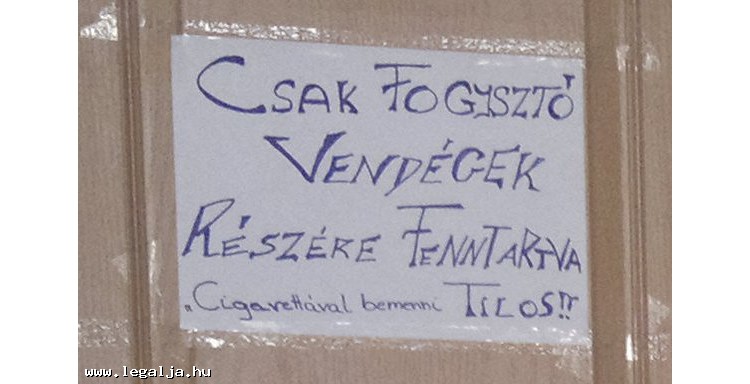 CSAK FOGYSZTÓ
VENDÉGEK
RÉSZÉRE FENNTARTVA
„Cigarettával bemenni TILOS!!!
www.legalja.hu